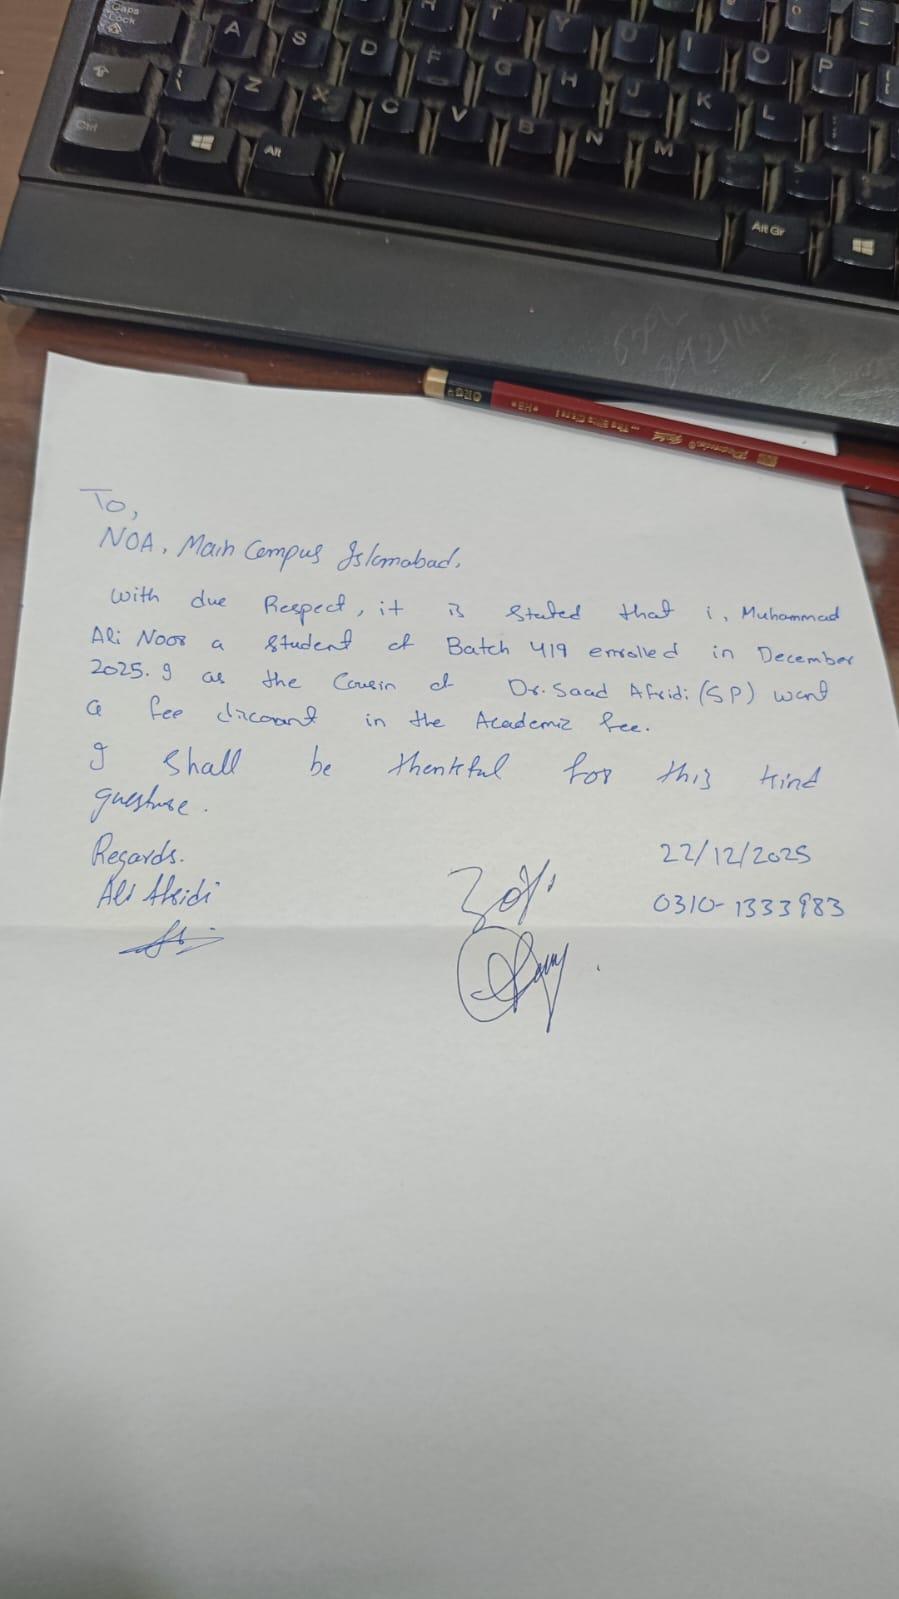 Caps Lock
A S D F G H J K L
T Y U I O P
Z X C V B N M
Ctrl Alt Alt Gr
To,
NOA, Main Campus Islamabad.
With due Respect, it is stated that i, Muhammad
Ali Noor a student of Batch 419 enrolled in December
2025. I as the Cousin of Dr. Saad Afridi (SP) want
a fee discount in the Academic fee.
I shall be thankful for this kind
guesture.
Regards. 22/12/2025
Ali Afridi 0310-1333983